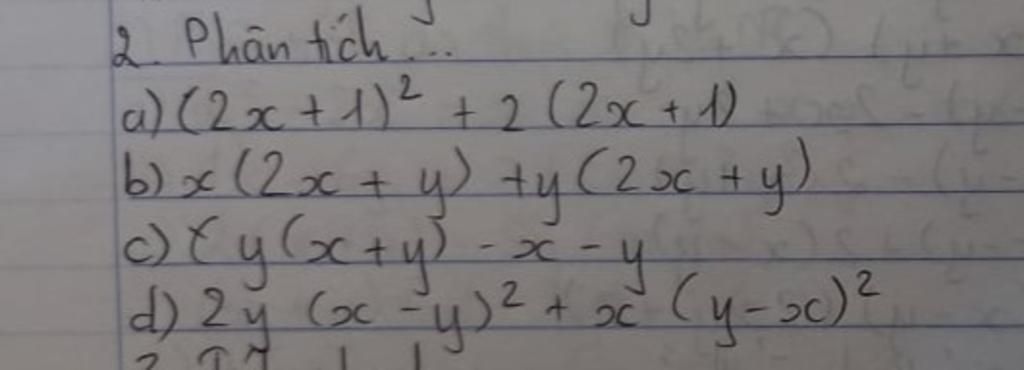 2. Phân tích...
a) (2x + 1)² + 2 (2x + 1)
b) x (2x + y) + y (2x + y)
c) y (x + y) - x - y
d) 2y (x - y)² + x (y - x)²